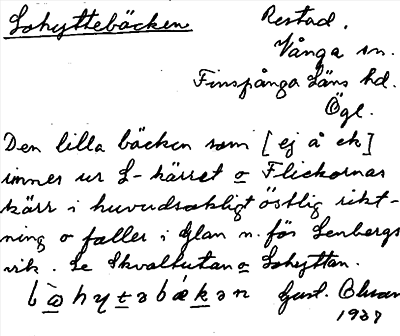 Lohyttebäcken
Restad.
Vånga sn.
Finspånga Läns hd.
Ögl.
Den lilla bäcken som [ej å ek]
inner ur L-kärret o Flickornas
kärr i huvudsakligt östlig rikt-
ning o faller i Glan n. för Lenbergs
vik. Se Skvaltutan o Lohyttan.
Gust. Olsson
1937